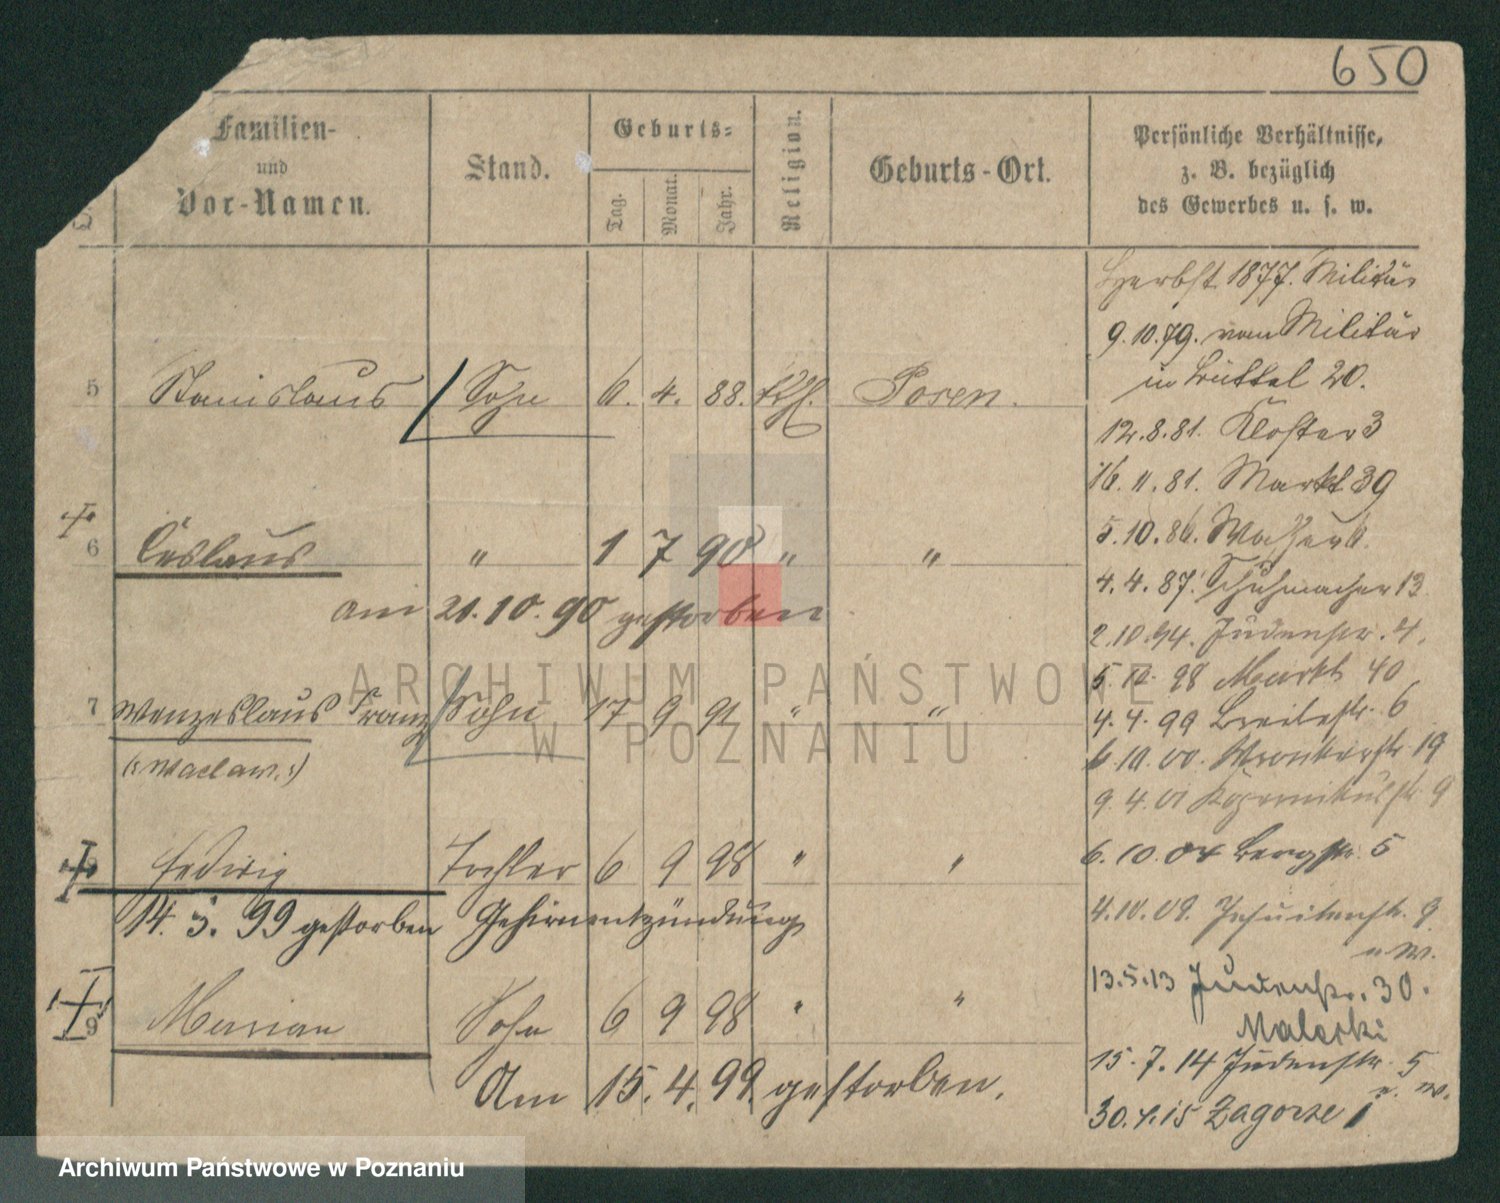 650
Familien-
und
Vor-Namen.
Stand.
Geburts-
Tag.
Monat.
Jahr.
Religion.
Geburts-Ort.
Persönliche Verhältnisse,
z. B. bezüglich
des Gewerbes u. s. w.
Herbst 1877. Militär
9.10.79. vom Militär
in Büttel 20.
5 Stanislaus Sohn 6. 4. 88. kth. Posen.
12.8.81. Kloster 3
16.11.81. Markt 39
5.10.86. Wasser
6 Ceslaus " 1 7 90 " "
4.4.87. Schuhmacher 13
am 21.10.90 gestorben
2.10.94. Judenstr. 4.
5.10.98 Markt 40
7 Wenzeslaus Franz Sohn 17 9 91 " "
4.4.99 Breitestr. 6
(: Waclaw. :)
6.10.00. Wronkerstr. 19
9.4.01 Kopernikusstr. 9
Hedwig Tochter 6 9 98 " "
6.10.04 Bergstr. 5
14. 3. 99 gestorben Gehirnentzündung
4.10.09. Jesuitenstr. 9
u. W.
13.5.13 Judenstr. 30.
9 Marian Sohn 6 9 98 " "
Maleski
15.7.14 Judenstr. 5
u. W.
Am 15.4.99. gestorben.
30.4.15 Zagorze 1
ARCHIWUM PAŃSTWOWE
W POZNANIU
Archiwum Państwowe w Poznaniu